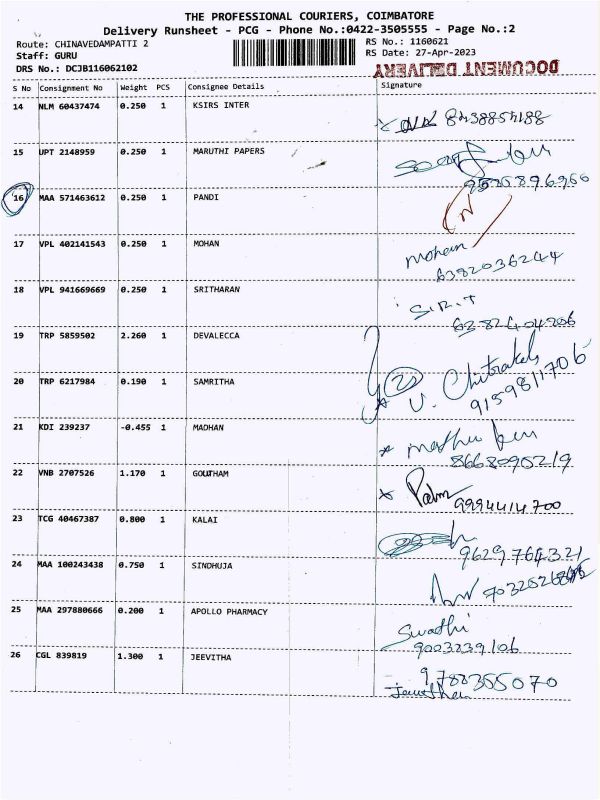 THE PROFESSIONAL COURIERS, COIMBATORE
Delivery Runsheet - PCG - Phone No.:0422-3505555 - Page No.:2
Route: CHINAVEDAMPATTI 2 RS No.: 1160621
Staff: GURU RS Date: 27-Apr-2023
DRS No.: DCJB116062102 DOCUMENT DELIVERY
S No Consignment No Weight PCS Consignee Details Signature
14 NLM 60437474 0.250 1 KSIRS INTER
15 UPT 2148959 0.250 1 MARUTHI PAPERS
16 MAA 571463612 0.250 1 PANDI
17 VPL 402141543 0.250 1 MOHAN Mohan
6382036244
18 VPL 941669669 0.250 1 SRITHARAN S.R.T
6382404206
19 TRP 5859502 2.260 1 DEVALECCA
20 TRP 6217984 0.190 1 SAMRITHA
9159811706
21 KDI 239237 -0.455 1 MADHAN
8668095219
22 VNB 2707526 1.170 1 GOUTHAM
9994414700
23 TCG 40467387 0.800 1 KALAI
9629764321
24 MAA 100243438 0.750 1 SINDHUJA
25 MAA 297880666 0.200 1 APOLLO PHARMACY Swathi
9003239106
26 CGL 839819 1.300 1 JEEVITHA 9788355070